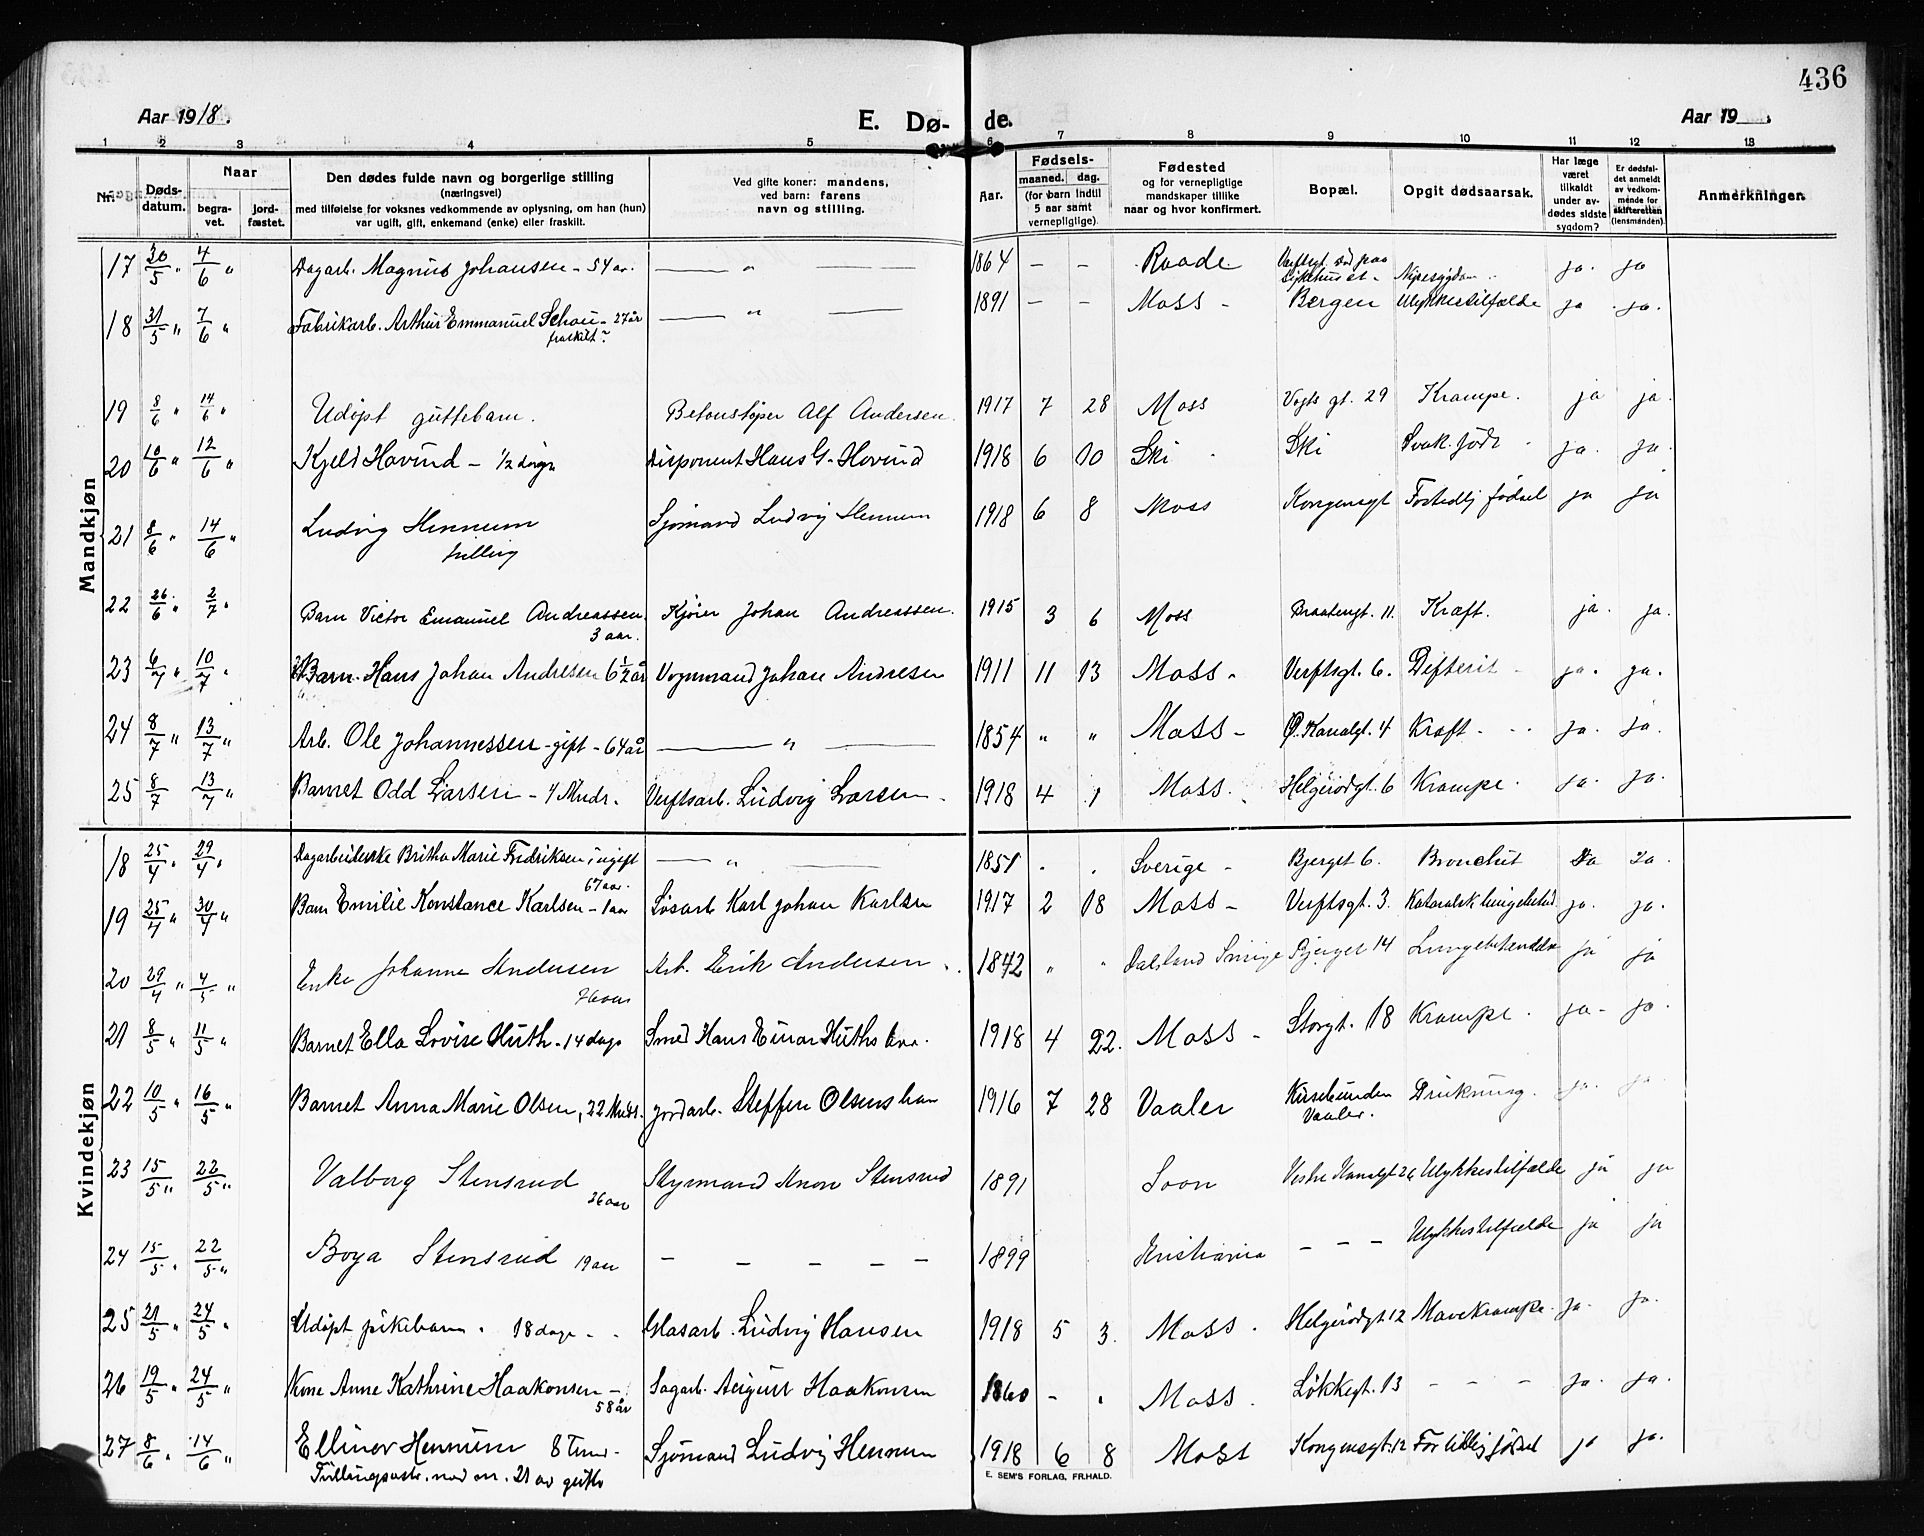 436
Aar 1918. E. Dø- de. Aar 19
1 2 3 4 5 6 7 8 9 10 11 12 13
Nr. Døds-datum. Naar begra-vet. jord-fæstet. Den dødes fulde navn og borgerlige stilling (næringsvei) med tilføielse for voksnes vedkommende av oplysning, om han (hun) var ugift, gift, enkemand (enke) eller fraskilt. Ved gifte koner: mandens, ved barn: farens navn og stilling. Aar. Fødsels- maaned. dag. (for barn indtil 5 aar samt vernepligtige). Fødested og for vernepligtige mandskaper tillike naar og hvor konfirmert. Bopæl. Opgit dødsaarsak. Har læge været tilkaldt under av-dødes sidste sygdom? Er dødsfal-det anmeldt av vedkom-mende for skifteretten (lensmanden). Anmerkninger.
Mandkjøn
17 30/5 " 4/6 " Dagarb. Magnus Johansen - 54 aar. — " — 1864 - - Raade. ja. ja
18 31/5 " 7/6 " Fabrikarb. Arthur Emmanuel Schou - 27 år — " — 1891 - - Moss - Bergen Ulykkestilfælde ja . ja.
fraskilt
19 8/6 " 14/6 " Udøpt guttebarn. Betonstøper Alf Andersen. 1917 7 28 Moss Vogts gt. 29 Krampe. ja ja.
20 10/6 " 12/6 " Kjeld Hovind - 1/2 døgn Disponent Hans G. Hovind 1918 6 10 Ski Ski Svak født ja. ja.
21 8/6 " 14/6 " Ludvig Hennum Sjømand Ludvig Hennum 1918 6 8 Moss Kongensgt Fortidlig fødsel ja ja
tvilling
22 26/6 " 2/7 " Barn Victor Emanuel Andreassen. Kjører Johan Andreassen. 1915 3 6 Moss Braatengt. 11. Kræft. ja. ja.
3 aar.
23 6/7 " 10/7 " Barn Hans Johan Andresen 6 1/2 år Vognmand Johan Andresen 1911 11 13 Moss - Verftsgt. 6. Difterit - ja. ja.
24 8/7 " 13/7 " Arb. Ole Johannessen - gift - 64 år — " — 1854 " " Moss - Ø. Kanalgt. 4 Kræft - ja. ja.
25 8/7 13/7 " Barnet Odd Larsen - 4 Mndr. Verftsarb. Ludvig Larsen. 1918 4 1 Moss. Helgerødgt. 6 Krampe. ja. ja.
Kvindekjøn
18 25/4 " 29/4 " Dagarbeiderske Britha Marie Fredriksen, ugift — " — 1851 . . Sverige - Bjerget 6. Bronchit Ja Ja.
67 aar.
19 25/4 " 30/4 " Barn Emilie Konstance Karlsen - 1 aar Løsarb. Karl Johan Karlsen 1917 2 18 Moss - Verftsgt. 3. ja. ja.
20 29/4 " 4/5 " Enke Johanne Andersen Arb. Erik Andersen. 1842 " " Dalsland Sverige Bjerget 14 Lungebetændelse ja ja
76 aar
21 8/5 " 11/5 " Barnet Ella Lovise Huth - 14 dage Smed Hans Einar Huths barn. 1918 4 22. Moss - Storgt. 18 Krampe. ja - ja.
22 10/5 " 16/5 " Barnet Anna Marie Olsen, 22 Mndr. Jordarb. Steffen Olsens barn 1916 7 28 Vaaler Kirsebunden Drukning. ja. ja.
Vaaler.
23 15/5 " 22/5 " Valborg Stensrud Styrmand Stensrud 1891 Soon Vestre Kanalgt 26 Ulykkestilfælde ja ja
26 aar
24 15/5 . 22/5 " Boya Stensrud 19 aar - - - - - 1899 Kristiania - - - Ulykkestilfælde ja ja
25 21/5 " 24/5 " Udøpt pikebarn. 18 dage - . Glasarb. Ludvig Hansen 1918 5 3. Moss. Helgerødgt. 12 Mavekrampe. ja. ja.
26 19/5 " 24/5 " Kone Anne Kathrine Haakonsen - Sagarb. August Haakonsen 1860 - . Moss. Løkkegt. 13 - - - ja. ja.
58 år
27 8/6 " 14/6 " Ellinor Hennum 8 Timer - Sjømand Ludvig Hennum 1918 6 8 Moss Kongensgt. 12 For tidlig fødsel ja ja.
Tvillingsøster med nr. 21 av gutter
E. SEM'S FORLAG, FR.HALD.